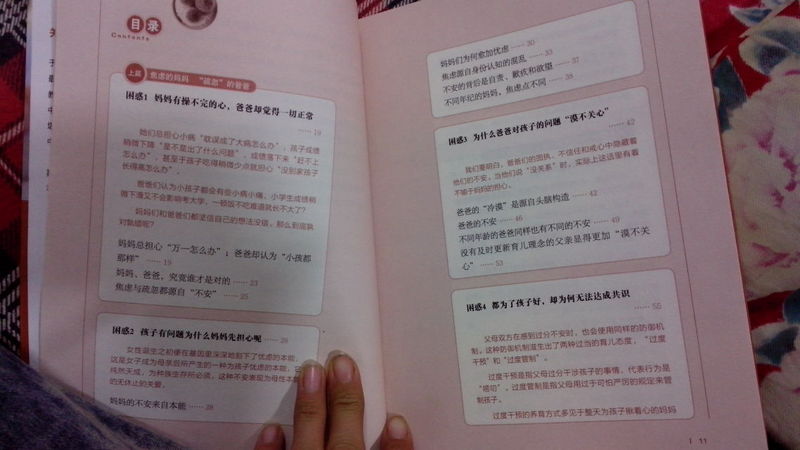 目录
Contents
上篇 焦虑的妈妈 “疏忽”的爸爸
困惑1 妈妈有操不完的心，爸爸却觉得一切正常
…… 19
她们总担心小病“耽误成了大病怎么办”；孩子成绩
稍微下降“是不是出了什么问题”，成绩落下来“赶不上
怎么办”，甚至于孩子吃得稍微少点就担心“没别家孩子
长得高怎么办”。
爸爸们认为小孩子都会有些小病小痛，小学生成绩稍
微下滑又不会影响考大学，一顿饭不吃难道就长不大了？
妈妈们和爸爸们都坚信自己的想法没错，那么到底孰
对孰错呢？
妈妈总担心“万一怎么办”；爸爸却认为“小孩都
那样” …… 19
妈妈、爸爸，究竟谁才是对的 …… 23
焦虑与疏忽都源自“不安” …… 25
困惑2 孩子有问题为什么妈妈先担心呢 …… 28
女性诞生之初便在基因里深深地刻下了忧虑的本能，
这是女子成为母亲后所产生的一种为孩子忧虑的本能，它
纯然天成，为种族生存所必须，这种不安表现为母性本能
的无休止的关爱。
妈妈的不安来自本能 …… 28
妈妈们为何愈加忧虑 …… 30
焦虑源自身份认知的混乱 …… 33
不安的背后是自责、歉疚和欲望 …… 37
不同年纪的妈妈，焦虑点不同 …… 38
困惑3 为什么爸爸对孩子的问题“漠不关心”
…… 42
我们要明白，爸爸们的固执、不信任和戒心中隐藏着
他们的不安。当他们说“没关系”时，实际上这话里有着
不输于妈妈的担心。
爸爸的“冷漠”是源自头脑构造 …… 42
爸爸的不安 …… 46
不同年龄的爸爸同样也有不同的不安 …… 49
没有及时更新育儿理念的父亲显得更加“漠不关
心” …… 53
困惑4 都为了孩子好，却为何无法达成共识
…… 55
父母双方在感到过分不安时，也会使用同样的防御机
制。这种防御机制滋生出了两种过当的育儿态度，“过度
干预”和“过度管制”。
过度干预是指父母过分干涉孩子的事情，代表行为是
“唠叨”。过度管制是指父母用过于可怕严厉的规定来管
制孩子。
过度干预的养育方式多见于整天为孩子揪着心的妈妈
11